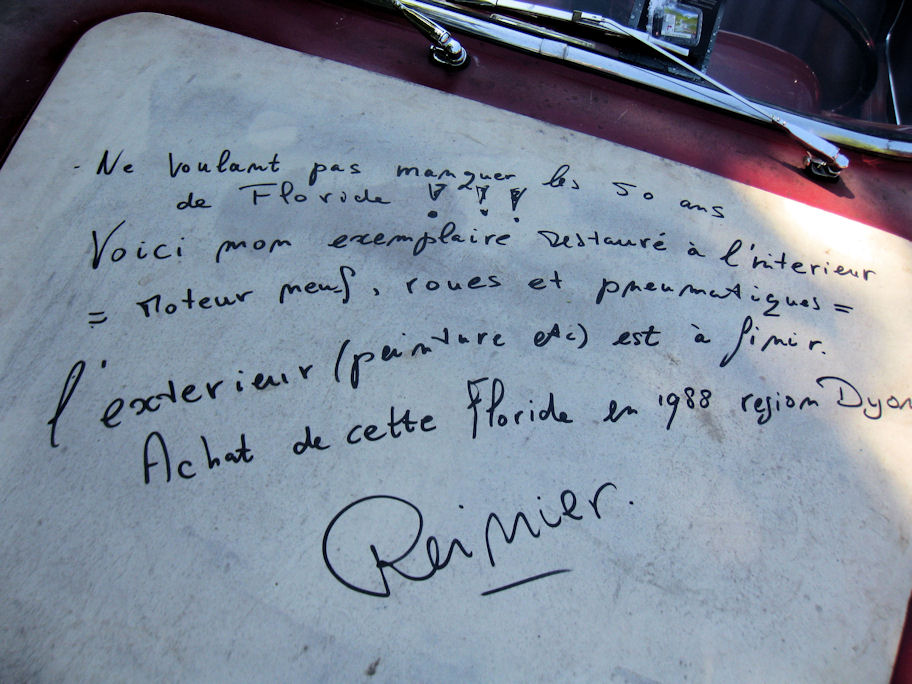 - Ne voulant pas manquer les 50 ans
de Floride !!!
Voici mon exemplaire restauré à l'interieur
= Moteur neuf, roues et pneumatiques =
l'exterieur (peinture etc) est à finir.
Achat de cette Floride en 1988 region Dyon
Reinier.